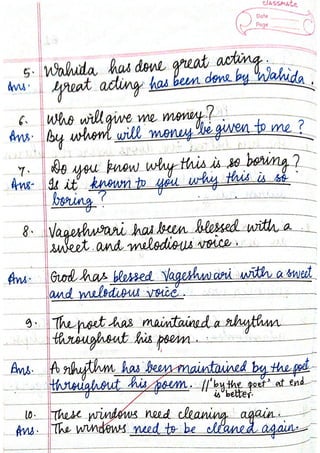 classmate
Date
Page
5. Wahida has done great acting.
Ans. Great acting has been done by Wahida.
6. Who will give me money?
Ans. By whom will money be given to me?
7. Do you know why this is so boring?
Ans- Is it known to you why this is so
boring?
8. Vageshwari has been blessed with a
sweet and melodious voice.
Ans. God has blessed Vageshwari with a sweet
and melodious voice.
9. The poet has maintained a rhythm
throughout his poem.
Ans. A rhythm has been maintained by the poet
throughout his poem. // 'by the poet' at end
is better.
10. These windows need cleaning again.
Ans. The windows need to be cleaned again.